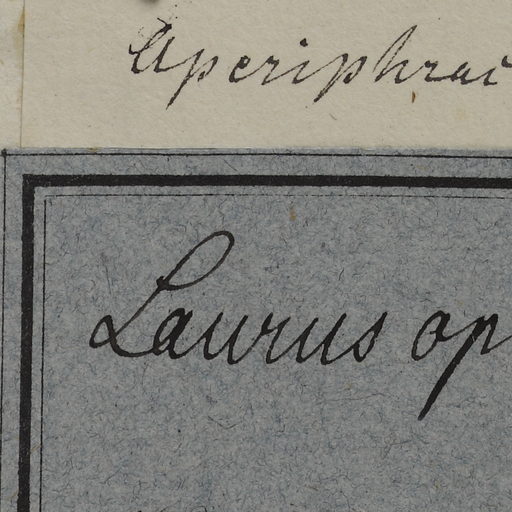 Aperiphrac
Laurus op